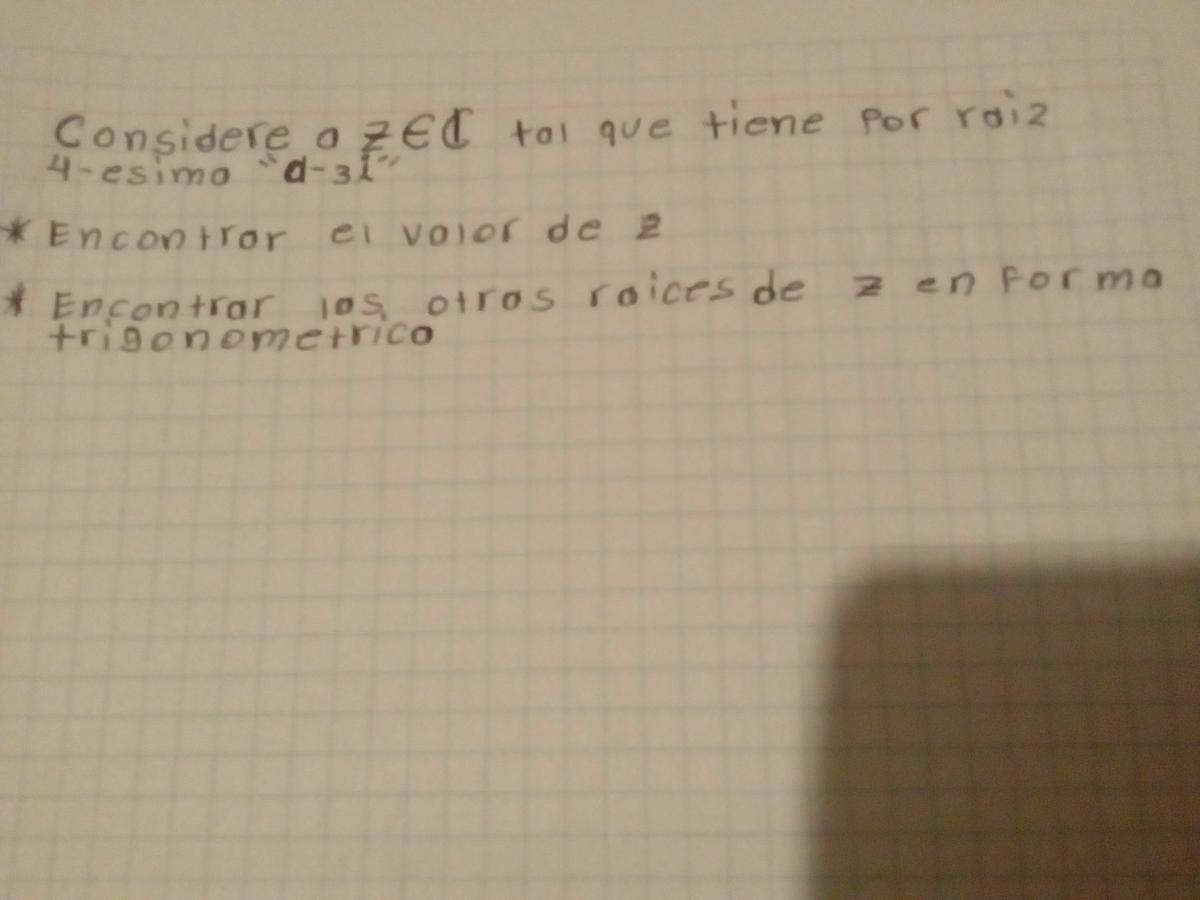 Considere a z∈ℂ tal que tiene por raiz
4-esima "d-3i"
* Encontrar el valor de z
* Encontrar las otras raices de z en forma
trigonometrica